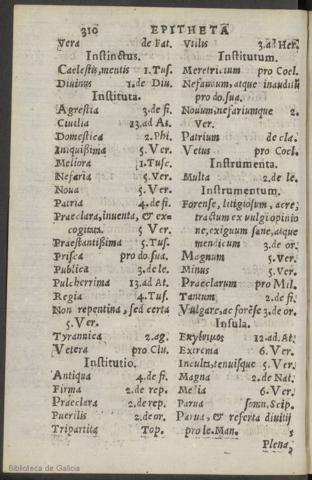 310 EPITHETA
Vera de Fat.
Instinctus.
Caelestis, mentis 1.Tus.
Diuinus 1.de Diu.
Instituta.
Agrestia 3.de fi.
Ciuilia 13.ad At.
Domestica 2.Phi.
Iniquißima 5.Ver.
Meliora 1.Tusc.
Nefaria 5.Ver.
Noua 5.Ver.
Patria 4.de fi.
Praeclara, inuenta, & ex-
cogitata 5.Ver.
Praestantißima 5.Tus.
Prisca pro do.sua.
Publica 3.de le.
Pulcherrima 13.ad At.
Regia 4.Tus.
Non repentina, sed certa
5.Ver.
Tyrannica 2.ag.
Vetera pro Clu.
Institutio.
Antiqua 4.de fi.
Firma 2.de rep.
Praeclara 2.de rep.
Puerilis 2.de or.
Tripartita Top.
Vtilis 3.ad Her.
Institutum.
Meretricum pro Coel.
Nefandum, atque inauditū
pro do.sua.
Nouum, nefariumque 2.
Ver.
Patrium de cla.
Vetus pro Coel.
Instrumenta.
Multa 2.de le.
Instrumentum.
Forense, litigiosum, acre,
tractum ex vulgi opinio
ne, exiguum sane, atque
mendicum 3.de or.
Magnum 5.Ver.
Minus 5.Ver.
Praeclarum pro Mil.
Tantum 2.de fi.
Vulgare, ac forēse 3.de or.
Insula.
12.ad At.
Extrema 6.Ver.
Inculta, tenuisque 5.Ver.
Magna 2.de Nat.
Melia 6.Ver.
Parua somn.Scip.
Parua, & referta diuitijs
pro le.Man.
Plena
Biblioteca de Galicia